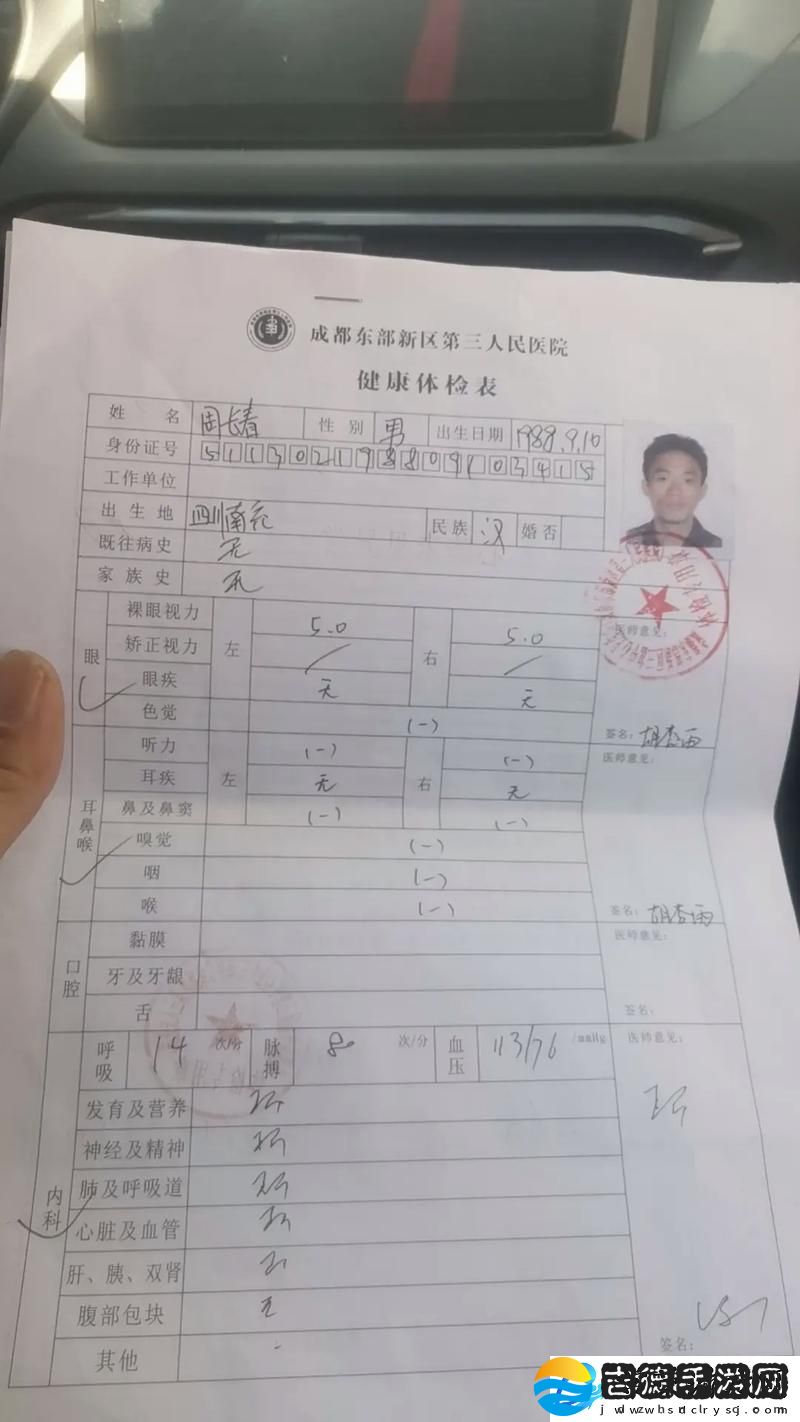 成都东部新区第三人民医院
健康体检表
姓 名 周长春 性 别 男 出生日期 1988.9.10
身份证号 511302198809103415
工作单位
出 生 地 四川南充 民族 汉 婚否
既往病史 无
家 族 史 无
眼
裸眼视力 左 5.0 右 5.0 医师意见:
矫正视力 / /
眼疾 无 无
色觉 (-) 签名:
耳鼻喉
听力 左 (-) 右 (-) 医师意见:
耳疾 无 无
鼻及鼻窦 (-) (-)
嗅觉 (-)
咽 (-)
喉 (-) 签名:
口腔
黏膜 医师意见:
牙及牙龈
舌 签名:
内科
呼吸 14 次/分 脉搏 80 次/分 血压 113/76 /mmHg 医师意见:
发育及营养
神经及精神
肺及呼吸道
心脏及血管
肝、胰、双肾
腹部包块 无
其他 -
签名:
吉德手游网